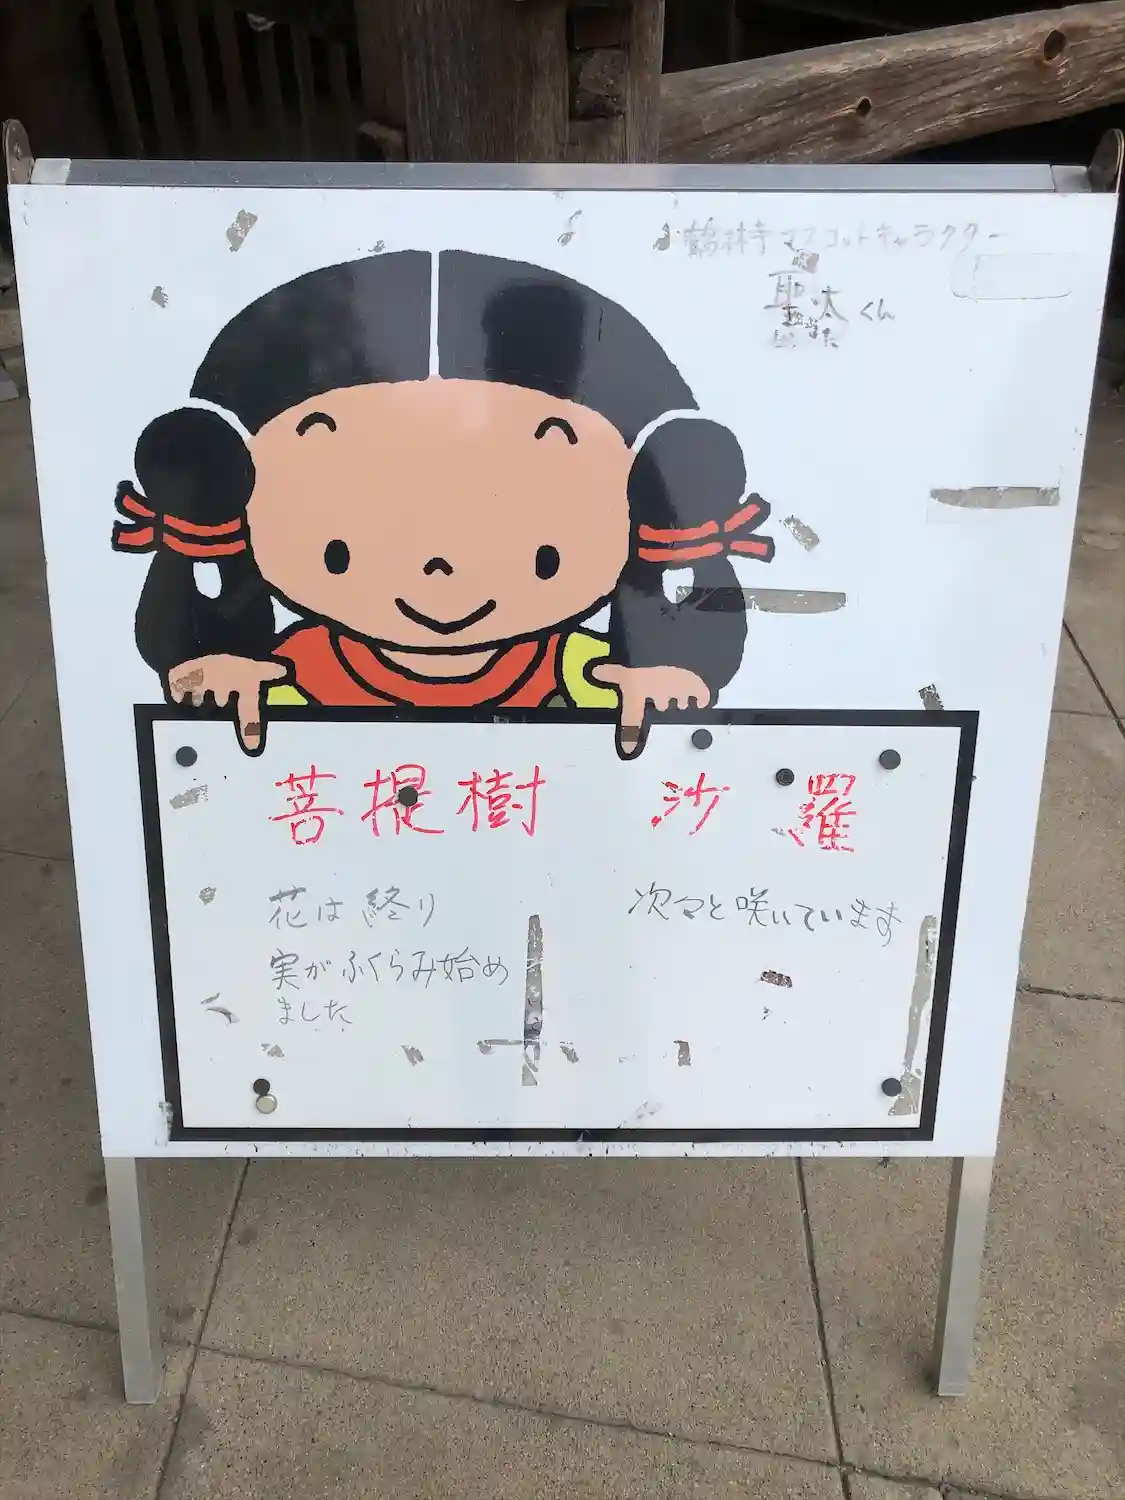 鶴林寺マスコットキャラクター
聖太くん
菩提樹
花は終り
実がふくらみ始め
ました
沙羅
次々と咲いています